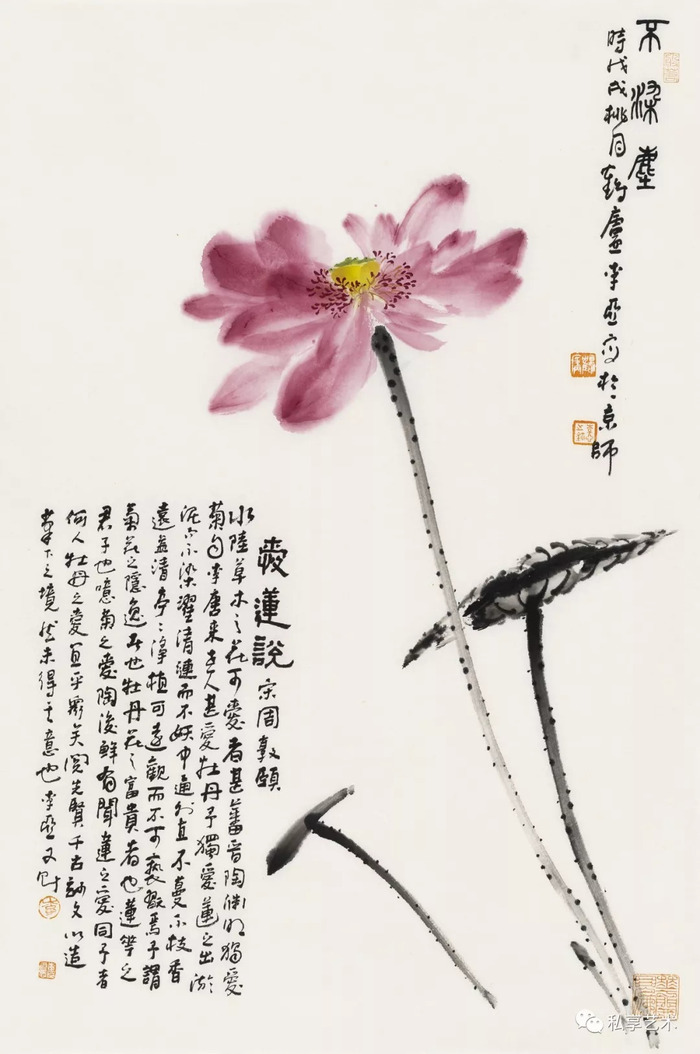 不染塵
時戊戌桃月鶴廬李亞寫於京師
愛蓮說 宋周敦頤
水陸草木之花可愛者甚蕃晉陶淵明獨愛
菊自李唐來世人甚愛牡丹予獨愛蓮之出淤
泥而不染濯清漣而不妖中通外直不蔓不枝香
遠益清亭々淨植可遠觀而不可褻翫焉予謂
菊花之隱逸者也牡丹花之富貴者也蓮華之
君子也噫菊之愛陶後鮮有聞蓮之愛同予者
何人牡丹之愛宜乎眾矣閱先賢千古妙文以造
筆下之境然未得其意也李亞又
私享艺术